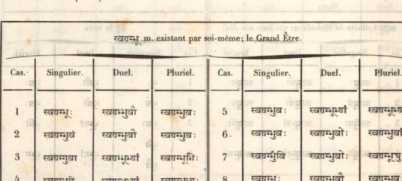 स्वयम्भू m. existant par soi-même; le Grand Être.
Cas. Singulier. Duel. Pluriel. Cas. Singulier. Duel. Pluriel.
1 स्वयम्भूः स्वयम्भुवौ स्वयम्भुवः 5 स्वयम्भुवः स्वयम्भूभ्यां
2 स्वयम्भुवं स्वयम्भुवौ स्वयम्भुवः 6 स्वयम्भुवः स्वयम्भुवोः स्वयम्भुवां
3 स्वयम्भुवा स्वयम्भूभ्यां स्वयम्भूभिः 7 स्वयम्भुवि स्वयम्भुवोः स्वयम्भूषु